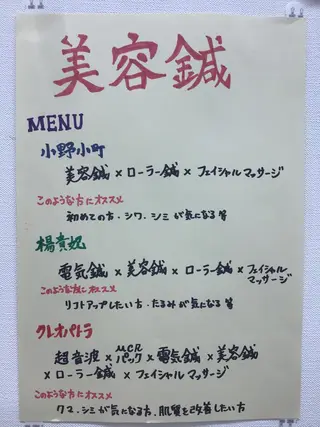 美容鍼
MENU
小野小町
美容鍼×ローラー鍼×フェイシャルマッサージ
このような方にオススメ
初めての方・シワ、シミが気になる方
楊貴妃
電気鍼×美容鍼×ローラー鍼×フェイシャル
マッサージ
このような方にオススメ
リフトアップしたい方・たるみが気になる方
クレオパトラ
超音波×MCRパック×電気鍼×美容鍼
×ローラー鍼×フェイシャルマッサージ
このような方にオススメ
クマ、シミが気になる方、肌質を改善したい方